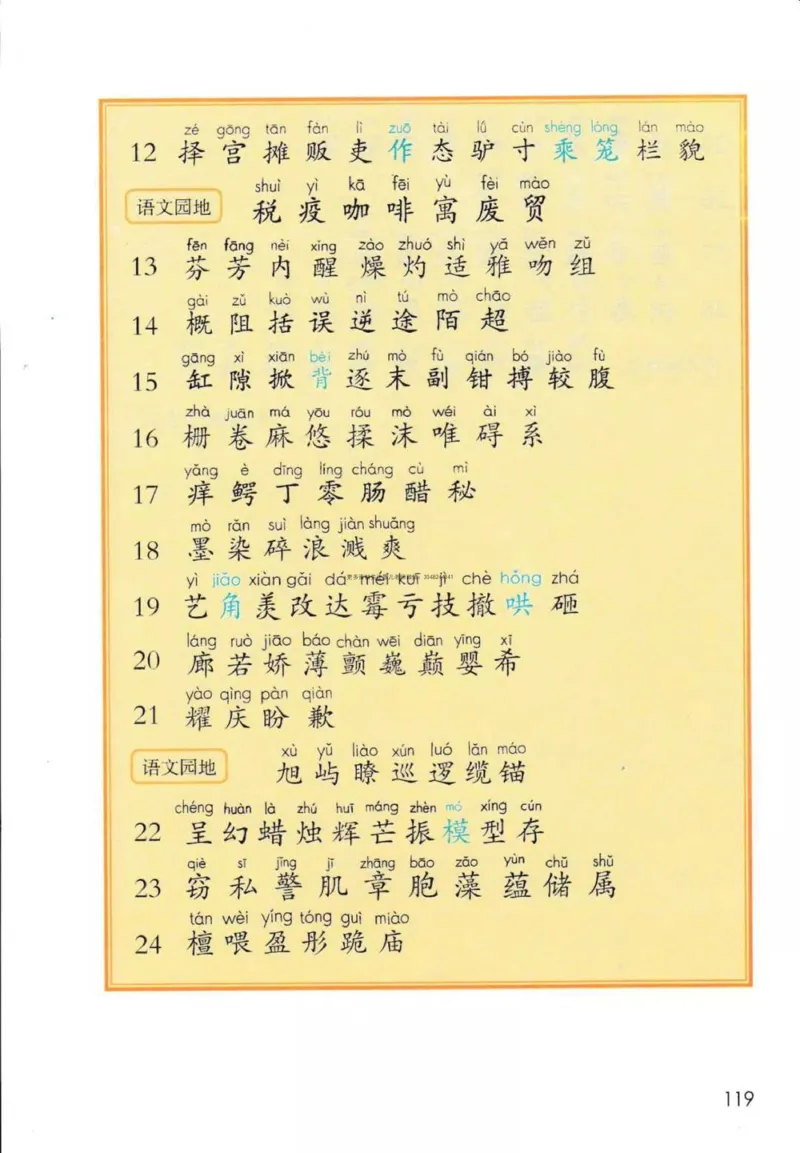 zé gōng tān fàn lì zuō tài lǘ cùn shèng lóng lán mào
12 择 宫 摊 贩 吏 作 态 驴 寸 乘 笼 栏 貌
shuì yì kā fēi yù fèi mào
语文园地 税 疫 咖 啡 寓 废 贸
fēn fāng nèi xǐng zào zhuó shì yǎ wěn zǔ
13 芬 芳 内 醒 燥 灼 适 雅 吻 组
gài zǔ kuò wù nì tú mò chāo
14 概 阻 括 误 逆 途 陌 超
gāng xì xiān bèi zhú mò fù qián bó jiào fù
15 缸 隙 掀 背 逐 末 副 钳 搏 较 腹
zhà juǎn má yōu róu mò wéi ài xì
16 栅 卷 麻 悠 揉 沫 唯 碍 系
yǎng è dīng líng cháng cù mì
17 痒 鳄 丁 零 肠 醋 秘
mò rǎn suì làng jiàn shuǎng
18 墨 染 碎 浪 溅 爽
yì jiǎo xiàn gǎi dá méi kuī jì chè hǒng zhá
19 艺 角 羡 改 达 霉 亏 技 撤 哄 砸
láng ruò jiāo báo chàn wēi diān yīng xī
20 廊 若 娇 薄 颤 巍 巅 婴 希
yào qìng pàn qiàn
21 耀 庆 盼 歉
xù yǔ liào xún luó lǎn máo
语文园地 旭 屿 瞭 巡 逻 缆 锚
chéng huàn là zhú huī máng zhèn mó xíng cún
22 呈 幻 蜡 烛 辉 芒 振 模 型 存
qiè sī jǐng jī zhāng bāo zǎo yùn chǔ shǔ
23 窃 私 警 肌 章 胞 藻 蕴 储 属
tán wèi yíng tóng guì miào
24 檀 喂 盈 彤 跪 庙
119